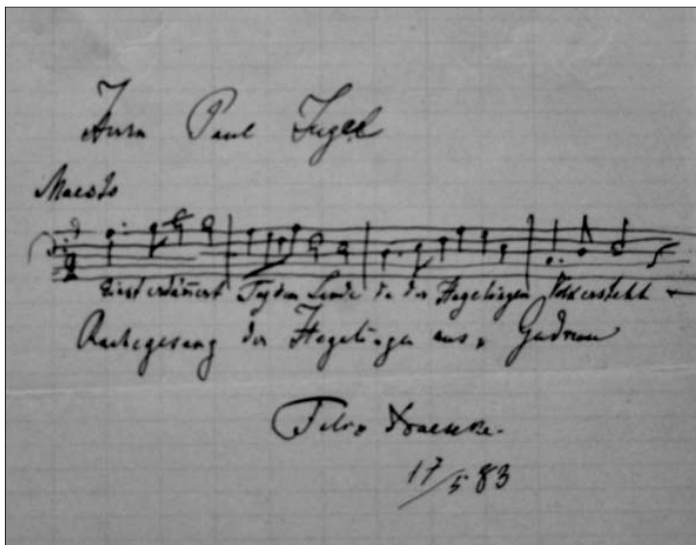 Herrn Paul
Maesto
Einst Tag dem Lande da der Hegelingen Volk ersteht
Rachegesang der Hegelingen aus „Gudrun
Felix Draeseke.
17/5 83